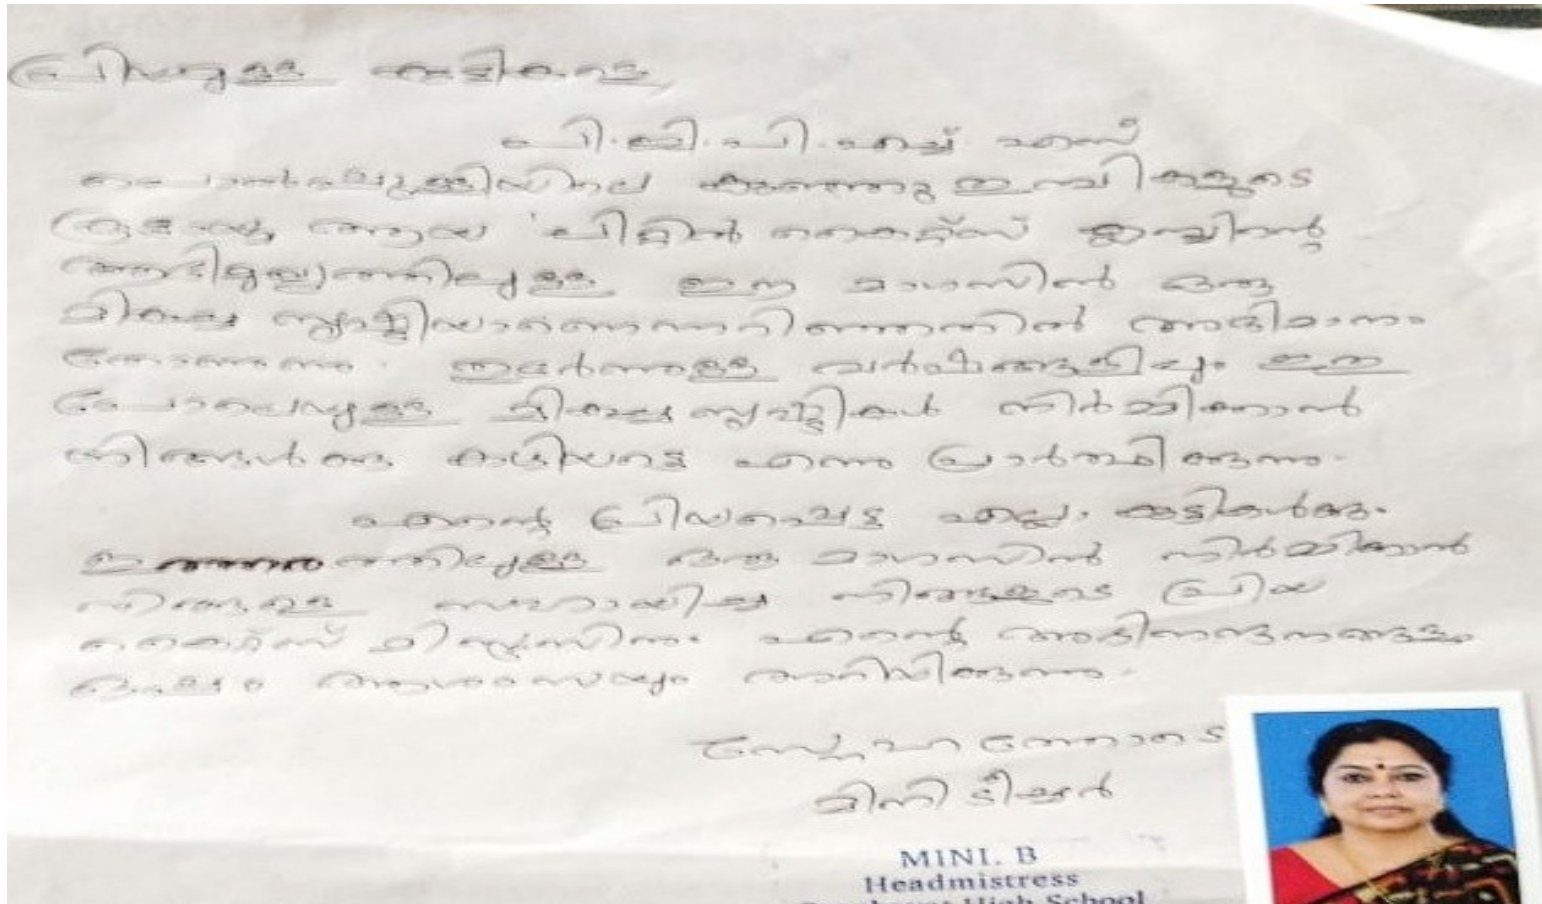 പ്രിയമുള്ള കുട്ടികളെ
പി.ജി.പി.എച്ച് എസ്
കുഞ്ഞു ഇഞ്ചികളുടെ
ആയ 'ലിറ്റിൽ കൈറ്റ്സ്
ആഭിമുഖ്യത്തിലുള്ള ഈ മാഗസിൻ ഒരു
മികച്ച സൃഷ്ടിയാണെന്നറിഞ്ഞതിൽ അഭിമാനം
തോന്നുന്നു. തുടർന്നുള്ള വർഷങ്ങളിലും ഇത്
പോലെയുള്ള മികച്ച സൃഷ്ടികൾ നിർമ്മിക്കാൻ
നിങ്ങൾക്കു കഴിയട്ടെ എന്നു പ്രാർത്ഥിക്കുന്നു.
എന്റെ പ്രിയപ്പെട്ട എല്ലാ കുട്ടികൾക്കും
ഇത്തരത്തിലുള്ള ഒരു മാഗസിൻ നിർമ്മിക്കാൻ
നിങ്ങളെ സഹായിച്ച നിങ്ങളുടെ പ്രിയ
കൈറ്റ്സ് മിസ്ട്രസിനും എന്റെ അഭിനന്ദനങ്ങളും
ഒപ്പം ആശംസയും അറിയിക്കുന്നു.
സ്നേഹത്തോടെ
മിനി ടീച്ചർ
MINI. B
Headmistress
High School